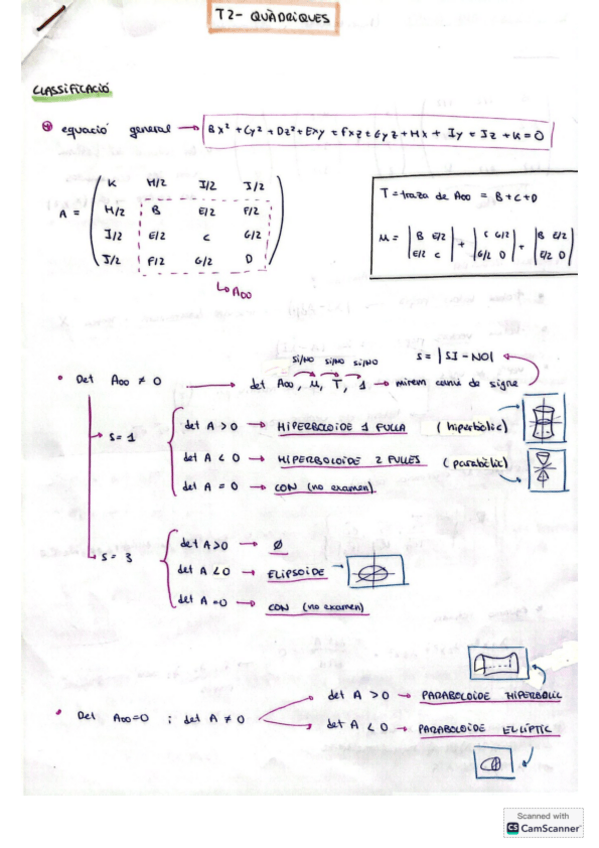 T2- QUÀDRIQUES
CLASSIFICACIÓ
equació general → Bx² + Cy² + Dz² + Exy + Fxz + Gyz + Hx + Iy + Jz + K = 0
K H/2 I/2 J/2
A = H/2 B E/2 F/2
I/2 E/2 C G/2
J/2 F/2 G/2 D
A00
T = traza de A00 = B + C + D
M = | B E/2 | + | C G/2 | + | B E/2 |
| E/2 C | | G/2 D | | E/2 D |
SI/NO SI/NO SI/NO S = | SI - NO |
• Det A00 ≠ 0 → det A00, M, T, 1 → mirem canvi de signe
→ S = 1
det A > 0 → HIPERBOLOIDE 1 FULLA (hiperbòlic)
det A < 0 → HIPERBOLOIDE 2 FULLES (parabòlic)
det A = 0 → CON (no examen)
S = 3
det A > 0 → Ø
det A < 0 → ELIPSOIDE
det A = 0 → CON (no examen)
• Det A00 = 0 ; det A ≠ 0
det A > 0 → PARABOLOIDE HIPERBÒLIC
det A < 0 → PARABOLOIDE ELLÍPTIC
Scanned with
CS CamScanner